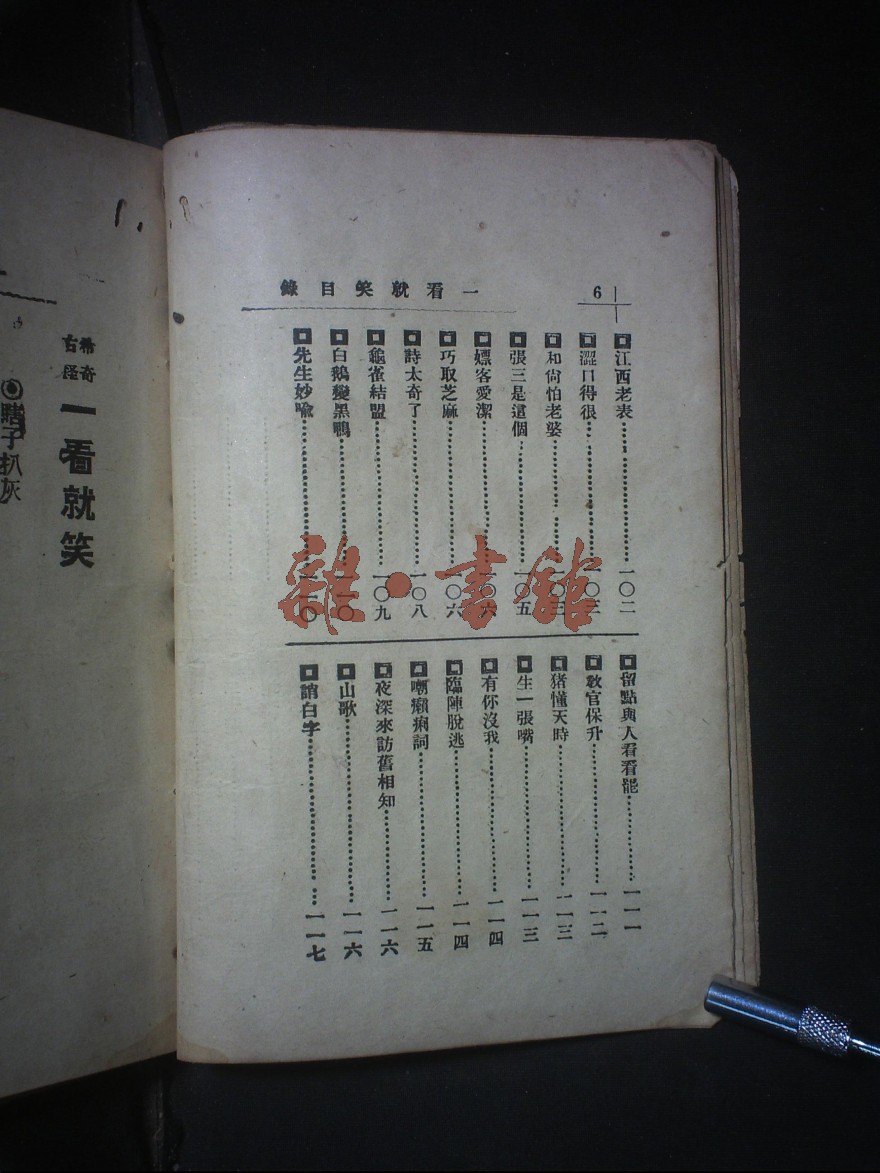 一看就笑目錄
6
江西老表……一〇二
澀口得很……一〇三
和尚怕老婆……一〇三
張三是這個……一〇五
嫖客愛潔……一〇六
巧取芝麻……一〇六
詩太奇了……一〇八
龜雀結盟……一〇九
白鵝變黑鴨……一一〇
先生妙喩……一一〇
留點與人看看罷……一一一
教官保升……一一二
猪懂天時……一一三
生一張嘴……一一三
有你沒我……一一四
臨陣脫逃……一一四
嘲癩痢詞……一一五
夜深來訪舊相知……一一六
山歌……一一六
誚白字……一一七
希奇古怪 一看就笑
瞎子扒灰
雜·書館